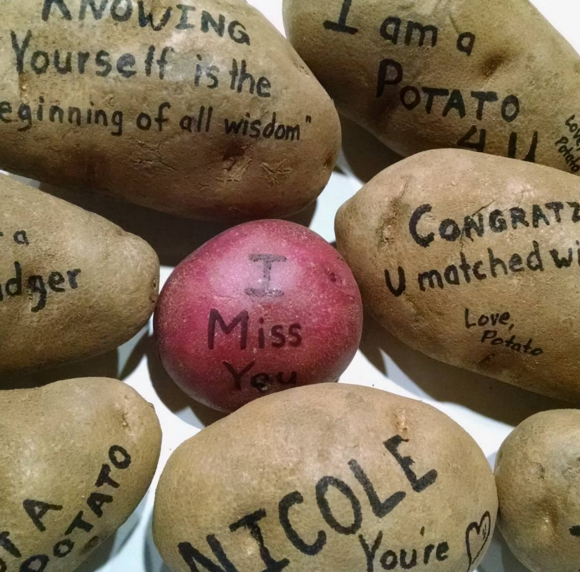 KNOWING
Yourself is the
eginning of all wisdom"
I am a
POTATO
4 U
Love,
Potato
CONGRATZ
U matched wi
Love,
Potato
a
dger
I
Miss
You
A
POTATO
NICOLE
You're